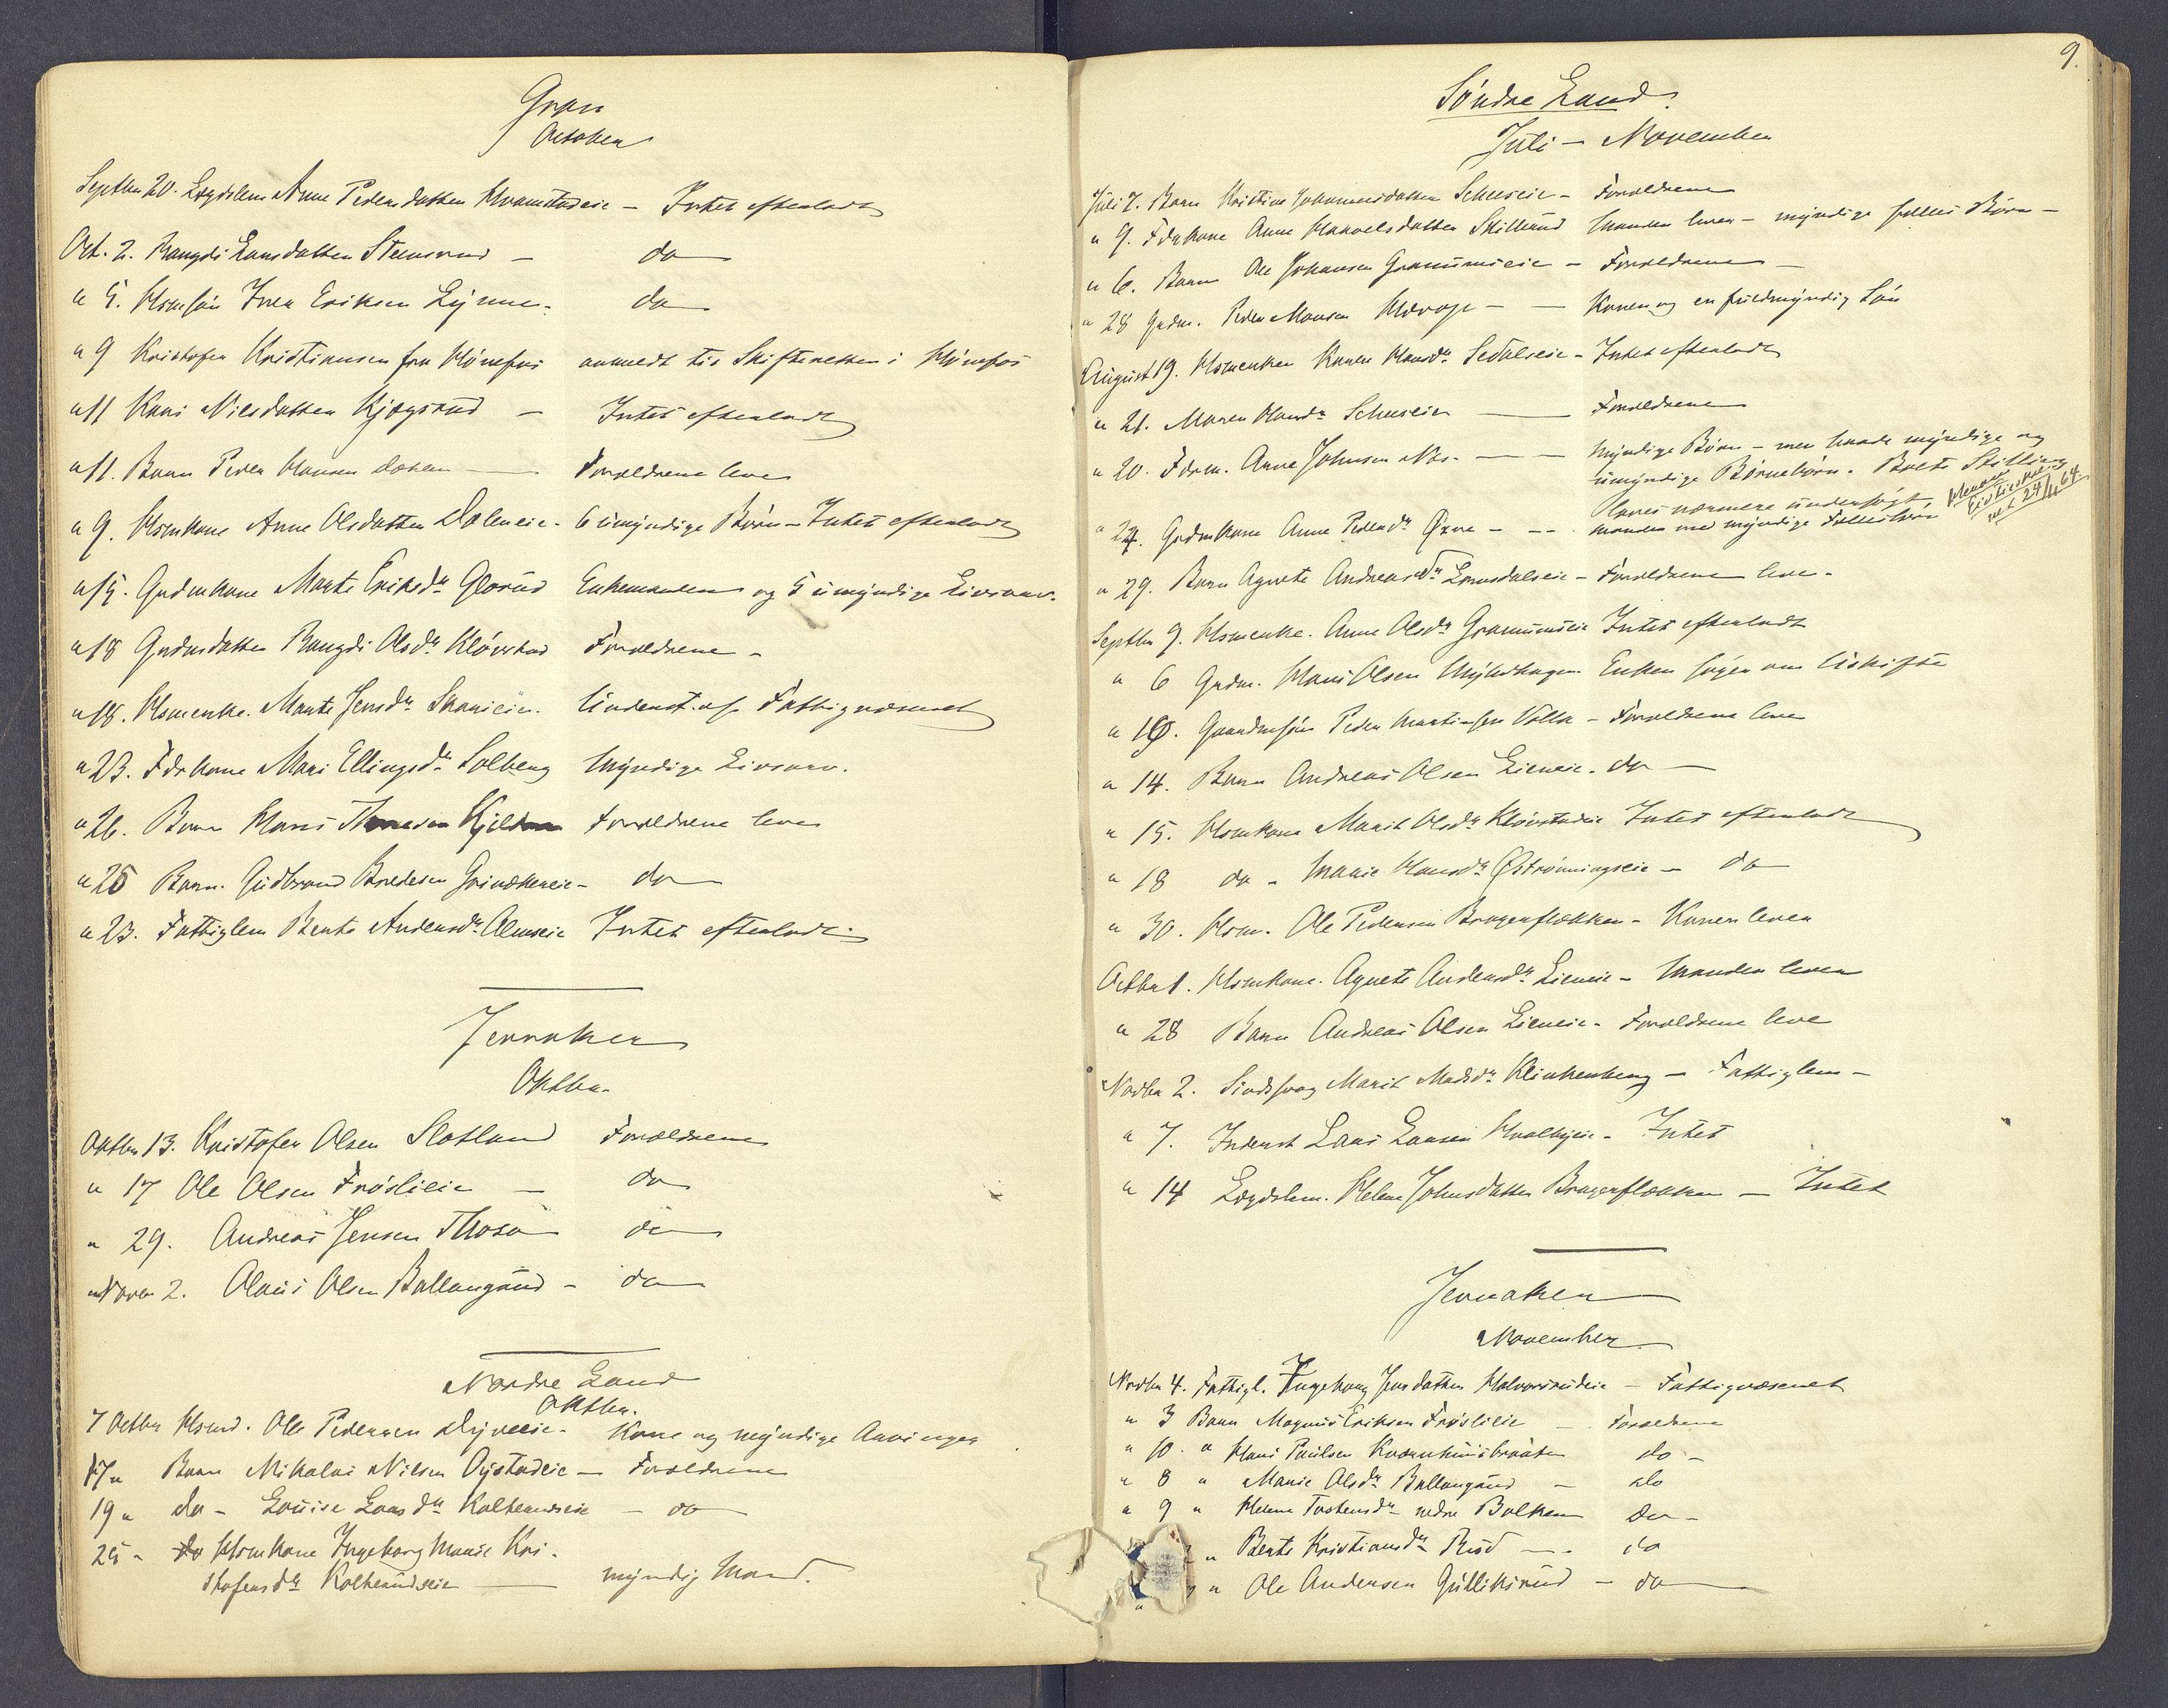 Gran
October
Septbr 20. Lægdslem Anne Pedersdatter Kvamstadeie – Intet efterladt
Oct. 2. Rangdi Larsdatter Steensrud – do
" 5. Hsmsøn Iver Eriksen Lynne - do
" 9 Kristofer Kristiansen fra Hønefos anmeldt til Skifteretten i Hønefos
" 11 Kari Nilsdatter – Intet efterladt
" 11. Barn Peder Hansen Dæhlen – Forældrene leve
" 9. Hsmkone Anne Olsdatter Dæleneie - 6 umyndige Børn – Intet efterladt
" 15. Grdmkone Marte Eriksdr Glorud Enkemanden og 5 umyndige Livsarv.
" 18 Grdmdatter Rangdi Olsdr Kløvstad Forældrene -
" 18. Hsmenke. Marte Jensdr Skarieie. Underst. af Fattigvæsenet
" 23. Fdrkone Mari Ellingsdr Solberg Myndige Livsarv.
" 26. Barn Hans Forældrene leve
" 25 Barn. Gudbrand Bredesen Grinakereie – do
" 23. Fattiglem Berte Andersdr Almseie Intet efterladt.
Jevnaker
Oktbr.
Oktbr 13. Kristofer Olsen Slotland Forældrene
" 17 Ole Olsen Frøslieie – do
" 29. Andreas Jensen Thoso do
Novbr 2. Olaus Olsen Ballangrud – do
Nordre Land
Oktbr.
7 Octbr Hsmd. Ole Pedersen - Kone og myndige Arvinger
17 " Barn Mikalai Nilsen – Forældrene
19 " do - Louise Larsdr Kolterudeie – do
25 " do Hsmkone Ingeborg Marie Kri-
stofersdr Kolterudeie – myndig Mand.
9.
Søndre Land.
Juli – November
Juli 7. Barn Kristine Johannesdatter – Forældrene
" 9. Fdrkone Anne Skillund Manden lever – myndige fælles Børn –
" 6. Barn Ole Johansen Granumseie – Forældrene –
" 28 Grdm. Peder Monsen – – Konen og en fuldmyndig Søn
August 19. Hsmenken Karen Hansdr – Intet efterladt
" 21. Maren Hansdr – Forældrene
" 20. Fdrm. Arne Johnsen – – Myndige Børn – men baade myndige og
umyndige Børnebørn.
nærmere undersøgt
24/11 64.
" 24. Grdmkone Anne Pedersdr – – Manden med myndige Fællesbørn
" 29. Barn Agnete Andreasdr – Forældrene leve.
Septbr 9. Hsmenke. Anne Olsdr Granumseie Intet efterladt
" 6 Grdm. Hans Olsen Enken søger om Uskifte
" 10. Gaardmsøn Peder Martinsen Volla – Forældrene leve
" 14. Barn Andreas Olsen Lieneie. do –
" 15. Hsmkone Marit Olsdr Kløvstadeie Intet efterladt
" 18 do - Marie Hansdr Østrøningseie – do
" 30. Hsm. Ole Pedersen Bragerflækken – Konen lever
Octbr 1. Hsmkone. Agnete Andersdr Lieneie – Manden lever
" 28 Barn Andreas Olsen Lieneie – Forældrene leve
Novbr 2. Sindssvag Marit Madsdr Klinkenberg – Fattiglem –
" 7. Inderst Lars Larsen – Intet
" 14 Lægdslem. Helene Johnsdatter Bragerflækken – Intet
Jevnaker
November
Novbr 4. Fattigl. Ingeborg Jensdatter Halvorsrudeie – Fattigvæsenet
" 3 Barn Magnus Eriksen Frøslieie – Forældrene
" 10. " Hans Paulsen Kværnhusbraaten do –
" 8 " Marie Olsdr Ballangrud – do
" 9 " Helene Torstensdr nedre Bolken do –
" Berte Kristiansdr Rud – do
" " Ole Andersen Gulliksrud – do